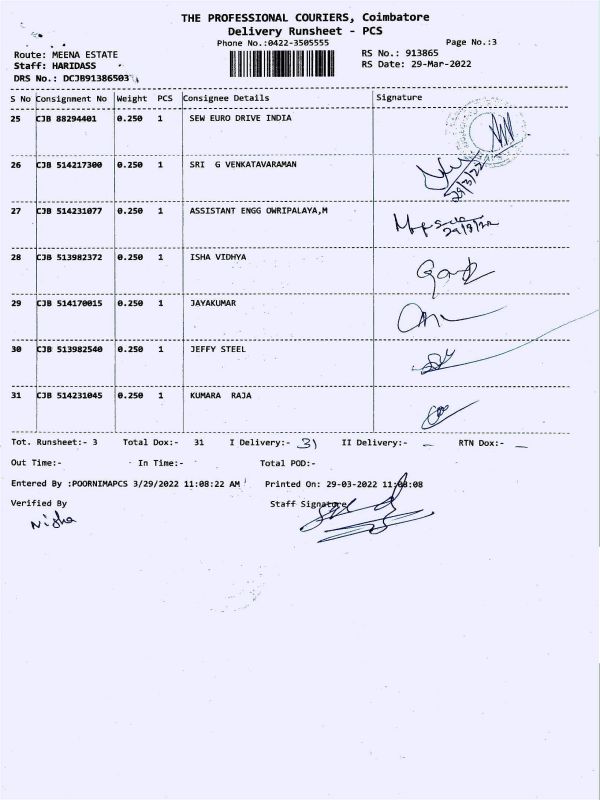 THE PROFESSIONAL COURIERS, Coimbatore
Delivery Runsheet - PCS
Phone No.:0422-3505555 Page No.:3
Route: MEENA ESTATE RS No.: 913865
Staff: HARIDASS RS Date: 29-Mar-2022
DRS No.: DCJB91386503
S No Consignment No Weight PCS Consignee Details Signature
25 CJB 88294401 0.250 1 SEW EURO DRIVE INDIA
26 CJB 514217300 0.250 1 SRI G VENKATAVARAMAN
29/3/22
27 CJB 514231077 0.250 1 ASSISTANT ENGG OWRIPALAYA,M
29/3/22
28 CJB 513982372 0.250 1 ISHA VIDHYA
29 CJB 514170015 0.250 1 JAYAKUMAR
30 CJB 513982540 0.250 1 JEFFY STEEL
31 CJB 514231045 0.250 1 KUMARA RAJA
Tot. Runsheet:- 3 Total Dox:- 31 I Delivery:- 31 II Delivery:- - RTN Dox:- -
Out Time:- In Time:- Total POD:-
Entered By :POORNIMAPCS 3/29/2022 11:08:22 AM Printed On: 29-03-2022 11:08:08
Verified By Staff Signature
Nisha